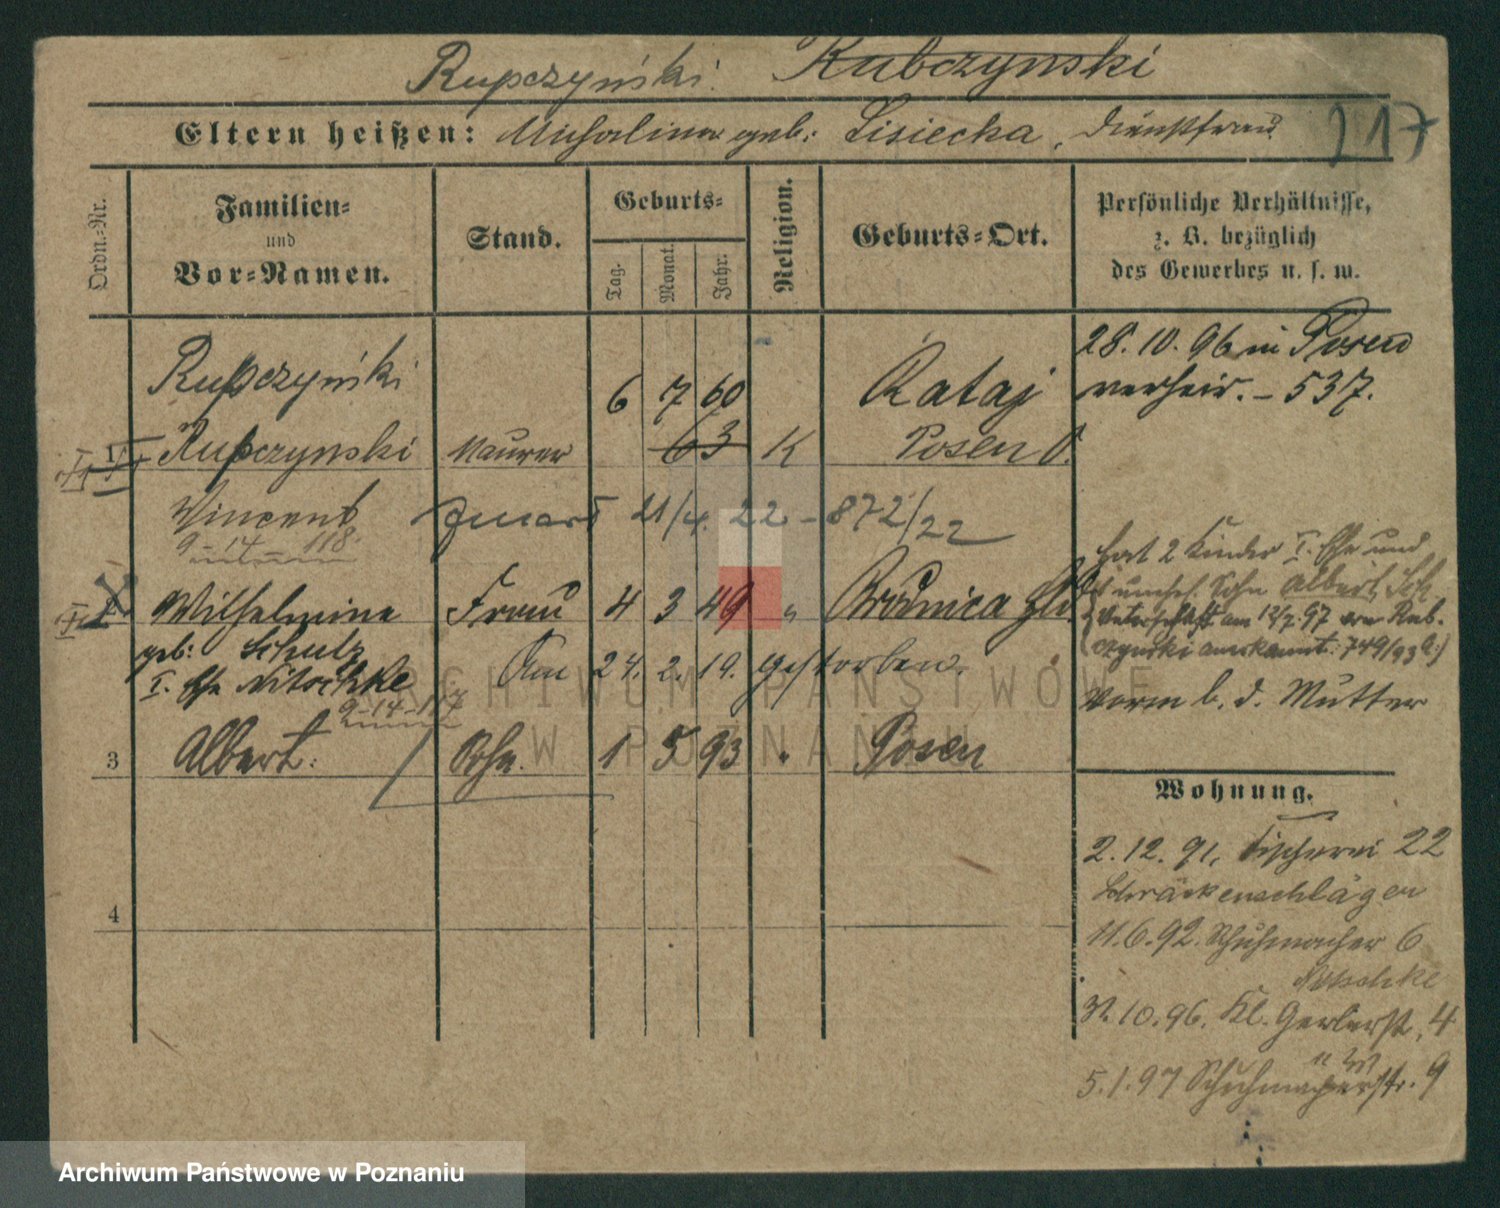 Rupczyński. Kubczynski
Eltern heißen: Michalina geb: Lisiecka, Dienstfrau
217
Ordn.-Nr.
Familien-
und
Vor-Namen.
Stand.
Geburts-
Tag.
Monat.
Jahr.
Religion.
Geburts-Ort.
Persönliche Verhältnisse,
z. B. bezüglich
des Gewerbes u. s. w.
Rupczyński 6 7 60 Rataj
28. 10. 96 in Posen
verheir. – 537.
1 Rupczynski Maurer 63 K Posen O.
Vincent 21/4. 22 – 872/22
9 – 14 – 118
hat 2 Kinder I. Ehe und
Sohn Albert, Sch.
Vaterschaft am 12/7. 97 von Rub-
czynski anerkannt. 749/93
Wilhelmine Frau 4 3 49 " Brodnica
geb: Schulz
I. Ehe Nitschke
Am 24. 2. 19. gestorben.
9 – 14 –
vorm b. d. Mutter
3 Albert. Sohn. 1 5 93 " Posen
4
Wohnung.
2. 12. 91, Fischerei 22
11. 6. 92. Schuhmacher 6
Nitschke
31. 10. 96. Kl. Gerberst. 4
5. 1. 97 Schuhmacherstr. 9
ARCHIWUM PAŃSTWOWE
W POZNANIU
Archiwum Państwowe w Poznaniu